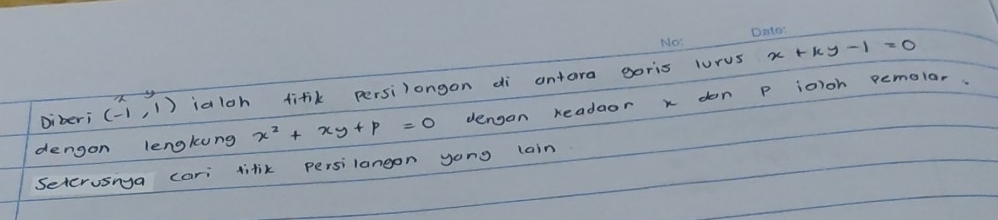 No: Date:
x y
Diberi (-1, 1) ialah titik persilangan di antara garis lurus x + ky - 1 = 0
dengan lengkung x² + xy + p = 0 dengan keadaan x dan p ialah pemalar.
Seterusnya cari titik persilangan yang lain